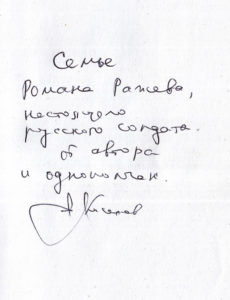 Семье
Романа Ражева,
настоящего
русского солдата.
От автора
и однополчан.